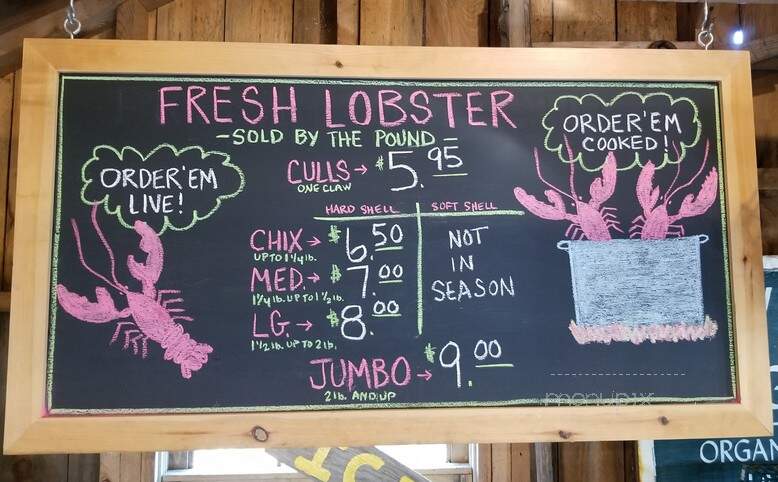 FRESH LOBSTER
-SOLD BY THE POUND-
ORDER'EM
LIVE!
ORDER'EM
COOKED!
CULLS → $5.95
ONE CLAW
HARD SHELL SOFT SHELL
CHIX → $6.50
UP TO 1 1/4 lb.
MED. → $7.00
1 1/4 lb. UP TO 1 1/2 lb.
LG. → $8.00
1 1/2 lb. UP TO 2 lb.
NOT
IN
SEASON
JUMBO → $9.00
2 lb. AND UP
menupix
ORGAN